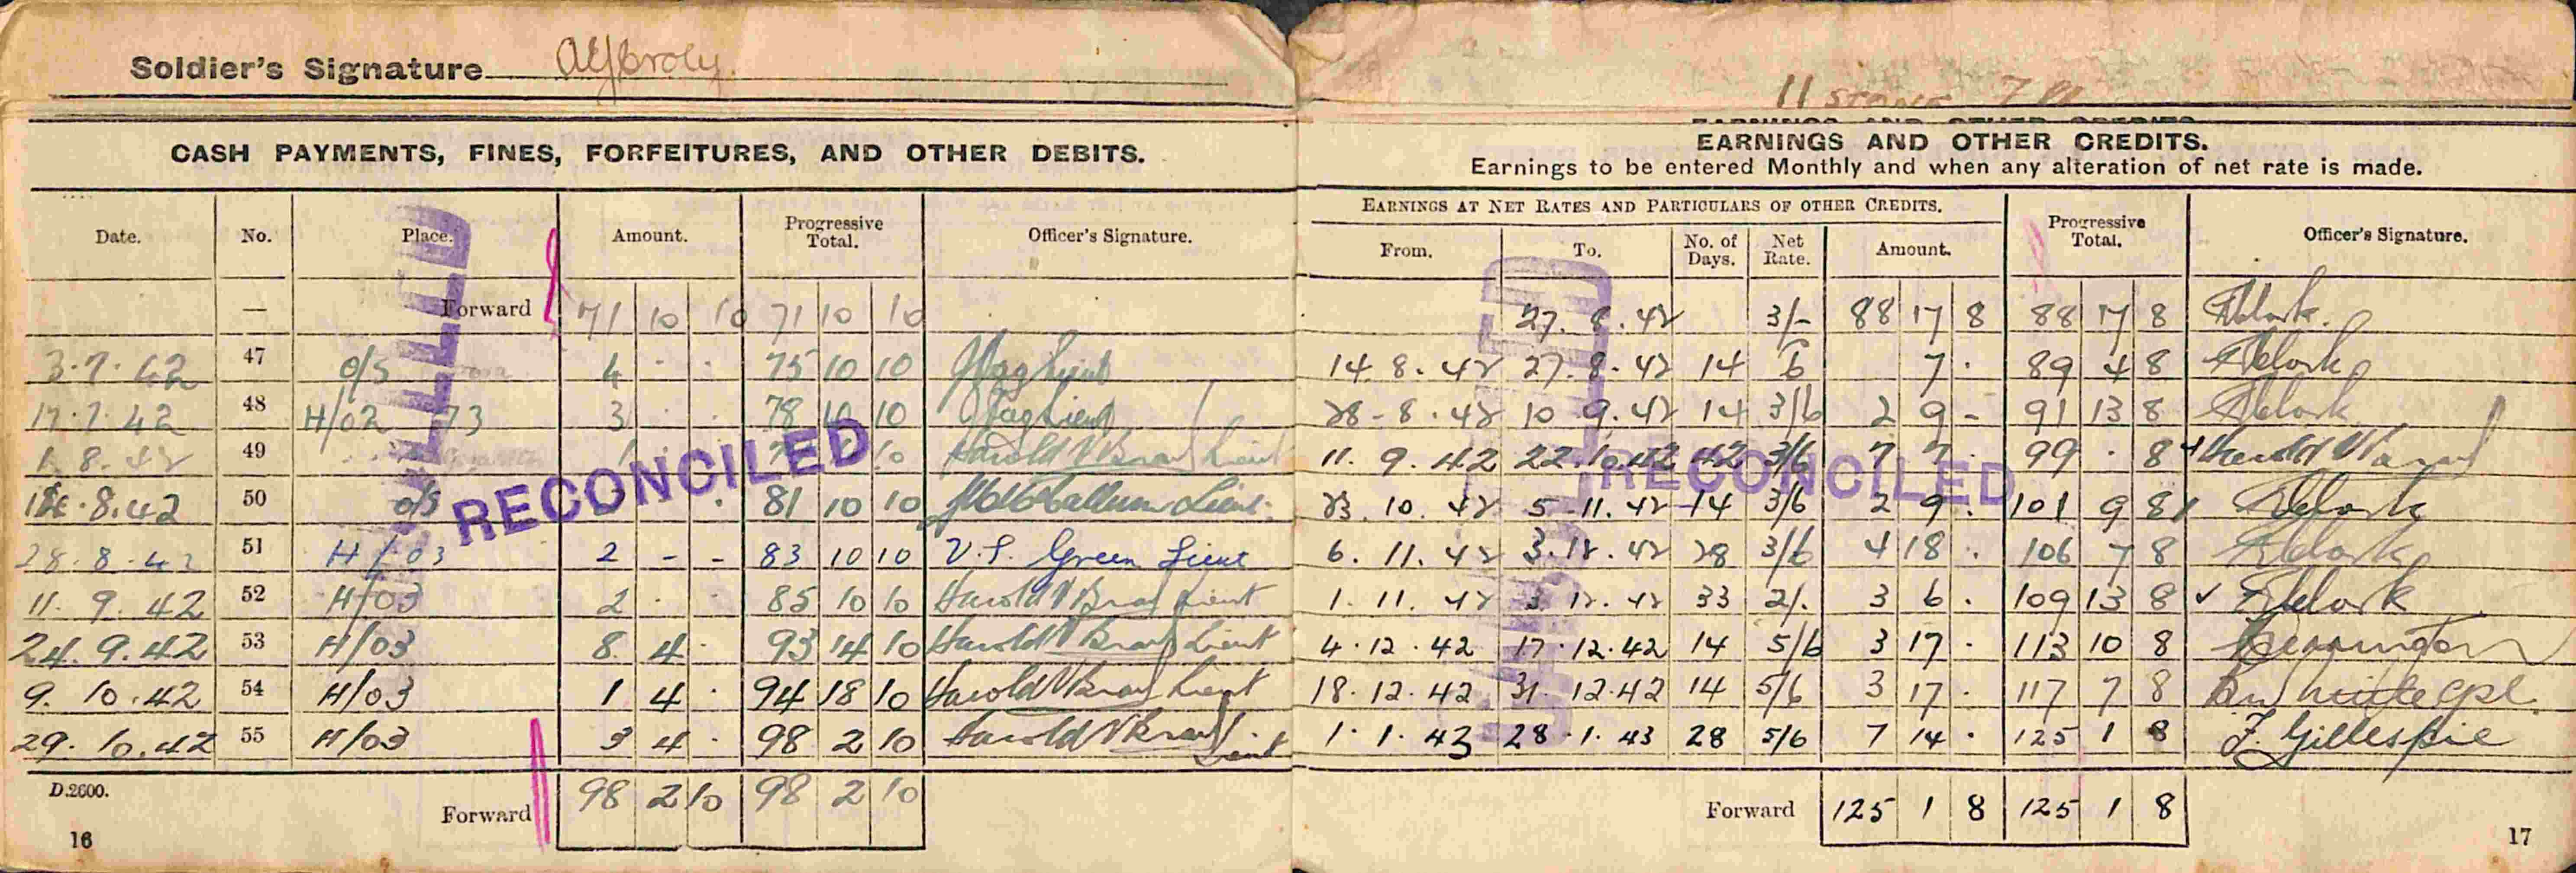 Soldier's Signature
CASH PAYMENTS, FINES, FORFEITURES, AND OTHER DEBITS.
Date. No. Place. Amount. Progressive Total. Officer's Signature.
— Forward 71 10 10 71 10 10
3.7.42 47 O/S 4 . . 75 10 10
17.7.42 48 H/02 73 3 . . 78 10 10
1.8.42 49 10 Harold V Lieut
8.42 50 O/S . 81 10 10 Lieut.
28.8.42 51 H/03 2 - - 83 10 10 V. S. Green Lieut
11.9.42 52 H/03 2 . . 85 10 10 Harold V Lieut
24.9.42 53 H/03 8 4 . 93 14 10 Harold V Lieut
9.10.42 54 H/03 1 4 . 94 18 10 Harold V Lieut
29.10.42 55 H/03 3 4 . 98 2 10 Harold V Lieut
RECONCILED
D.2600.
Forward 98 2 10 98 2 10
16
11 STONE 7
EARNINGS AND OTHER CREDITS.
Earnings to be entered Monthly and when any alteration of net rate is made.
EARNINGS AT NET RATES AND PARTICULARS OF OTHER CREDITS. Progressive Total. Officer's Signature.
From. To. No. of Days. Net Rate. Amount.
27.8.42 3/- 88 17 8 88 17 8
14.8.42 27.8.42 14 6 7 . 89 4 8
28-8.42 10 9.42 14 3/6 2 9 - 91 13 8
11.9.42 22.10.42 42 3/6 7 7 . 99 . 8 Harold V
23.10.42 5-11.42 14 3/6 2 9 . 101 9 8
6.11.42 3.12.42 28 3/6 4 18 . 106 7 8
1.11.42 3.12.42 33 2/. 3 6 . 109 13 8
4.12.42 17.12.42 14 5/6 3 17 . 113 10 8
18.12.42 31.12.42 14 5/6 3 17 . 117 7 8 Cpl.
1.1.43 28.1.43 28 5/6 7 14 . 125 1 8 F Gillespie
RECONCILED
Forward 125 1 8 125 1 8
17